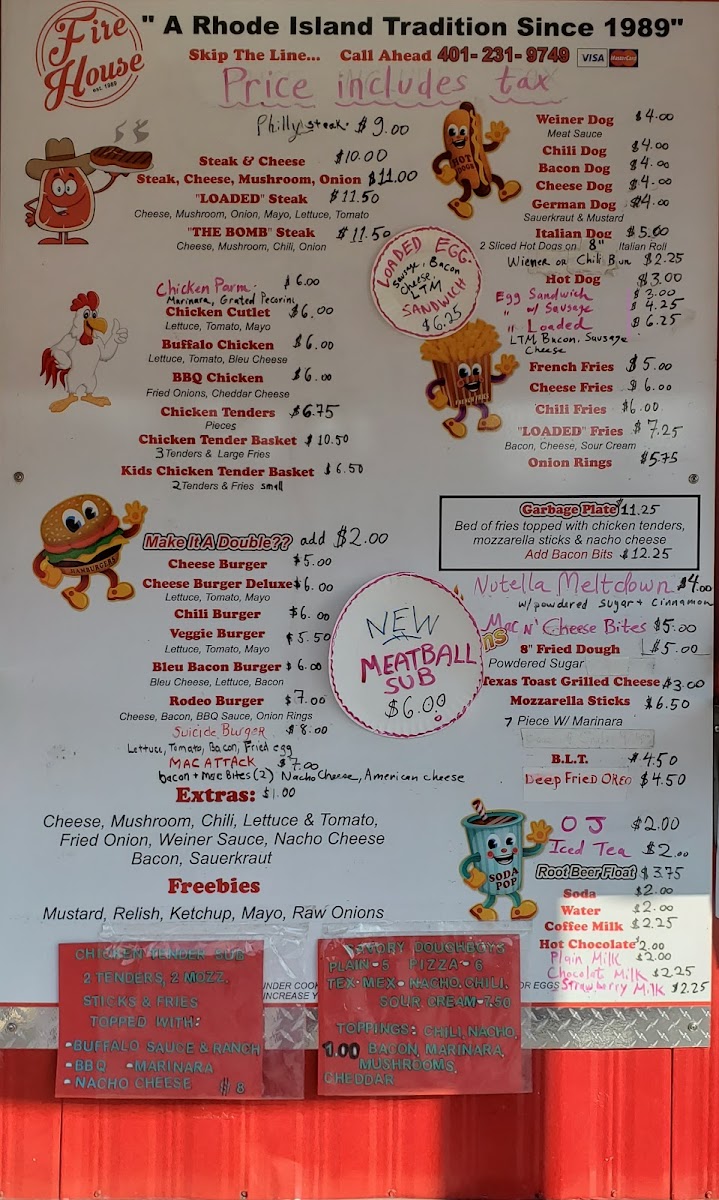 Fire House
est. 1989
" A Rhode Island Tradition Since 1989"
Skip The Line... Call Ahead 401-231-9749 VISA MasterCard
Price includes tax
Philly steak. $9.00
Steak & Cheese $10.00
Steak, Cheese, Mushroom, Onion $11.00
"LOADED" Steak $11.50
Cheese, Mushroom, Onion, Mayo, Lettuce, Tomato
"THE BOMB" Steak $11.50
Cheese, Mushroom, Chili, Onion
Chicken Parm. $6.00
Marinara, Grated Pecorino
Chicken Cutlet $6.00
Lettuce, Tomato, Mayo
Buffalo Chicken $6.00
Lettuce, Tomato, Bleu Cheese
BBQ Chicken $6.00
Fried Onions, Cheddar Cheese
Chicken Tenders $6.75
Pieces
Chicken Tender Basket $10.50
3 Tenders & Large Fries
Kids Chicken Tender Basket $6.50
2 Tenders & Fries small
HOT DOGS
Weiner Dog $4.00
Meat Sauce
Chili Dog $4.00
Bacon Dog $4.00
Cheese Dog $4.00
German Dog $4.00
Sauerkraut & Mustard
Italian Dog $5.00
2 Sliced Hot Dogs on 8" Italian Roll
Wiener or Chili Bun $2.25
Hot Dog $3.00
Egg Sandwich $3.00
" w/ Sausage $4.25
" Loaded $6.25
LTM Bacon, Sausage
Cheese
LOADED EGG.
Sausage, Bacon
Cheese,
LTM
SANDWICH
$6.25
French Fries $5.00
Cheese Fries $6.00
Chili Fries $6.00
"LOADED" Fries $7.25
Bacon, Cheese, Sour Cream
Onion Rings $5.75
Garbage Plate $11.25
Bed of fries topped with chicken tenders,
mozzarella sticks & nacho cheese
Add Bacon Bits $12.25
HAMBURGERS
Make It A Double?? add $2.00
Cheese Burger $5.00
Cheese Burger Deluxe $6.00
Lettuce, Tomato, Mayo
Chili Burger $6.00
Veggie Burger $5.50
Lettuce, Tomato, Mayo
Bleu Bacon Burger $6.00
Bleu Cheese, Lettuce, Bacon
Rodeo Burger $7.00
Cheese, Bacon, BBQ Sauce, Onion Rings
Suicide Burger $8.00
Lettuce, Tomato, Bacon, Fried egg
MAC ATTACK $7.00
bacon + Mac Bites (2) Nacho Cheese, American cheese
NEW
MEATBALL
SUB
$6.00
Nutella Meltdown $4.00
w/ powdered sugar + cinnamon
Mac N' Cheese Bites $5.00
8" Fried Dough $5.00
Powdered Sugar
Texas Toast Grilled Cheese $3.00
Mozzarella Sticks $6.50
7 Piece W/ Marinara
B.L.T. $4.50
Deep Fried OREO $4.50
Extras: $1.00
Cheese, Mushroom, Chili, Lettuce & Tomato,
Fried Onion, Weiner Sauce, Nacho Cheese
Bacon, Sauerkraut
Freebies
Mustard, Relish, Ketchup, Mayo, Raw Onions
SODA POP
OJ $2.00
Iced Tea $2.00
Root Beer Float $3.75
Soda $2.00
Water $2.00
Coffee Milk $2.25
Hot Chocolate $2.00
Plain Milk $2.00
Chocolat Milk $2.25
Strawberry Milk $2.25
UNDER COOK
OR EGGS
INCREASE Y
CHICKEN TENDER SUB
2 TENDERS, 2 MOZZ.
STICKS & FRIES
TOPPED WITH:
•BUFFALO SAUCE & RANCH
•BBQ •MARINARA
•NACHO CHEESE $8
SAVORY DOUGHBOYS
PLAIN-5 PIZZA-6
TEX-MEX-NACHO, CHILI,
SOUR CREAM-7.50
TOPPINGS: CHILI, NACHO,
1.00 BACON, MARINARA,
MUSHROOMS,
CHEDDAR